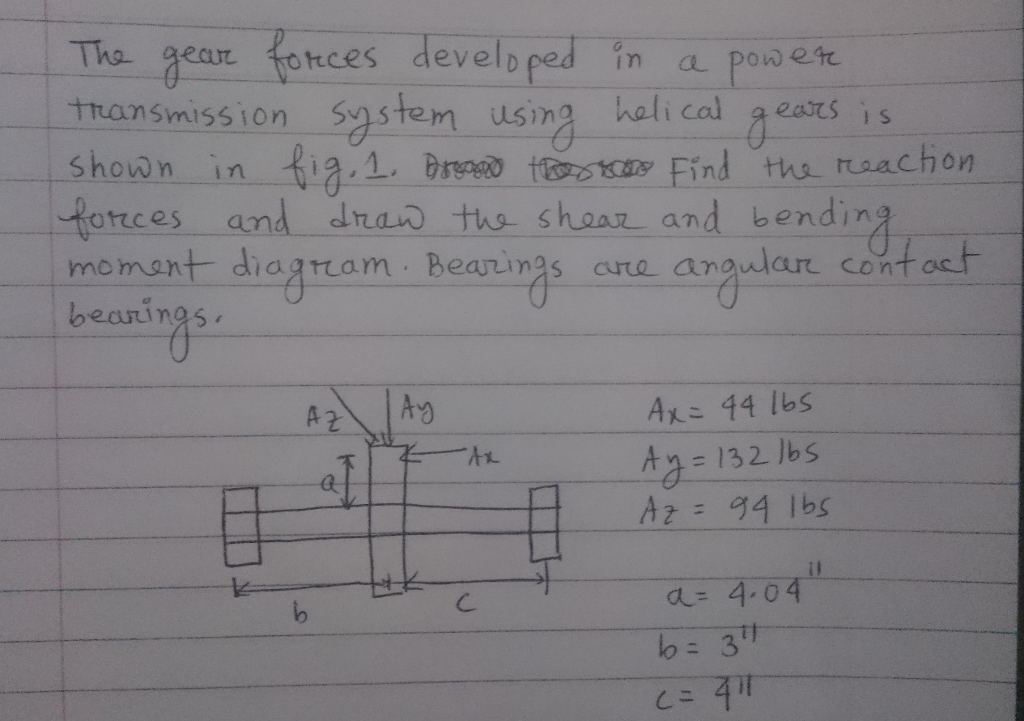 The gear forces developed in a power
transmission system using helical gears is
shown in fig.1. Find the reaction
forces and draw the shear and bending
moment diagram. Bearings are angular contact
bearings.
Az Ay Ax = 44 lbs
Ax Ay = 132 lbs
a Az = 94 lbs
b c a = 4.04"
b = 3"
c = 4"